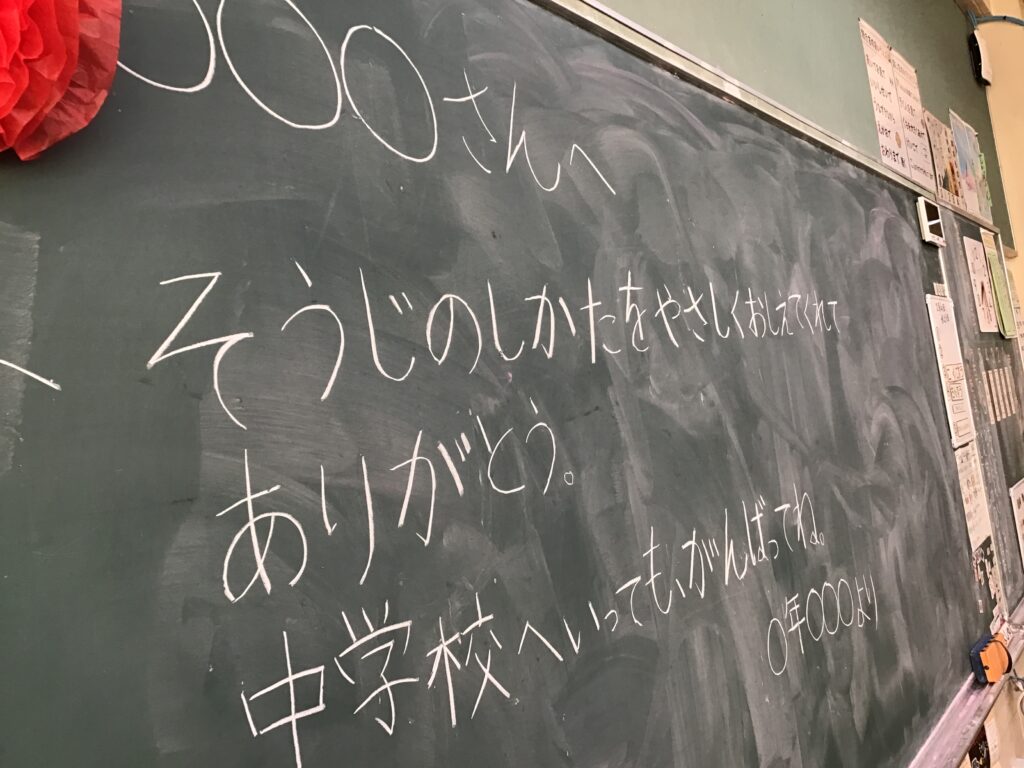 〇〇〇さんへ
そうじのしかたをやさしくおしえてくれて
ありがとう。
中学校へいっても、がんばってね。
〇年〇〇〇より